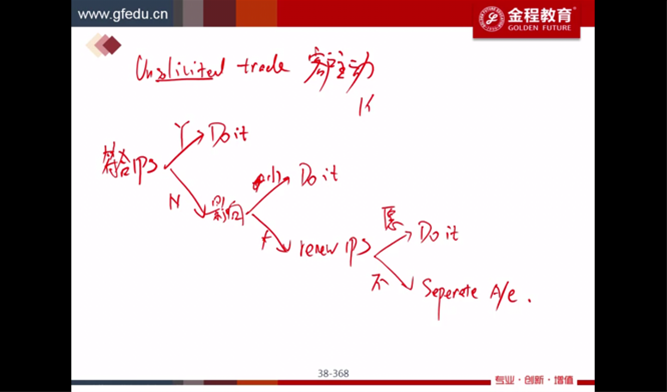 www.gfedu.cn
金程教育
GOLDEN FUTURE
Unsolicited trade 客户主动
K
Y
Do it
符合IPS
小
Do it
N
影响
愿
Do it
大
renew IPS
不
Seperate A/c.
38-368
专业·创新·增值